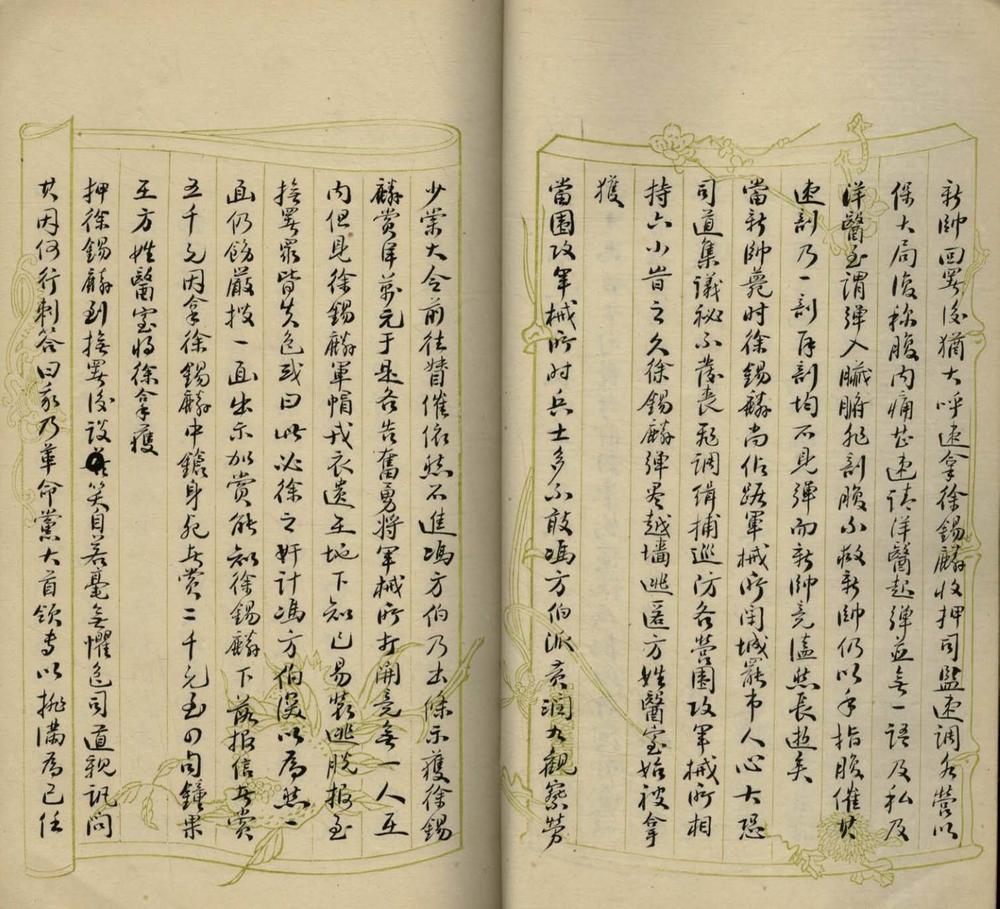 新帥回署後猶大呼速拿徐錫麟收押司監速調各營以
保大局復称腹内痛甚速請洋醫起弹並無一語及私及
洋醫至謂弹入臟腑非剖腹不救新帥仍以手指腹催其
速剖乃一剖再剖均不見弹而新帥竟溘然長逝矣
當新帥薨时徐錫麟尚佔踞軍械所閉城罷市人心大恐
司道集議秘不發喪飛調緝捕巡防各營圍攻軍械所相
持六小旹之久徐錫麟弹尽越墙逃匿方姓醫室始被拿
獲
當圍攻軍械所时兵士多不敢馮方伯派黄潤九觀察勞
少棠大令前往督催依然不進馮方伯乃出條示獲徐錫
麟賞洋萬元于是各皆奮勇將軍械所打開竟無一人在
内但見徐錫麟軍帽戎衣遗在地下知已易裝逃脱报至
撫署眾皆失色或曰此必徐之奸計馮方伯深以為然一
面仍飭嚴搜一面出示加賞能知徐錫麟下落报信者賞
五千元因拿徐錫麟中鎗身死者賞二千元至四句鐘果
在方姓醫室將徐拿獲
押徐錫麟到撫署後談笑自若毫無懼色司道親訊問
其因何行刺答曰我乃革命黨大首領专以排滿為己任